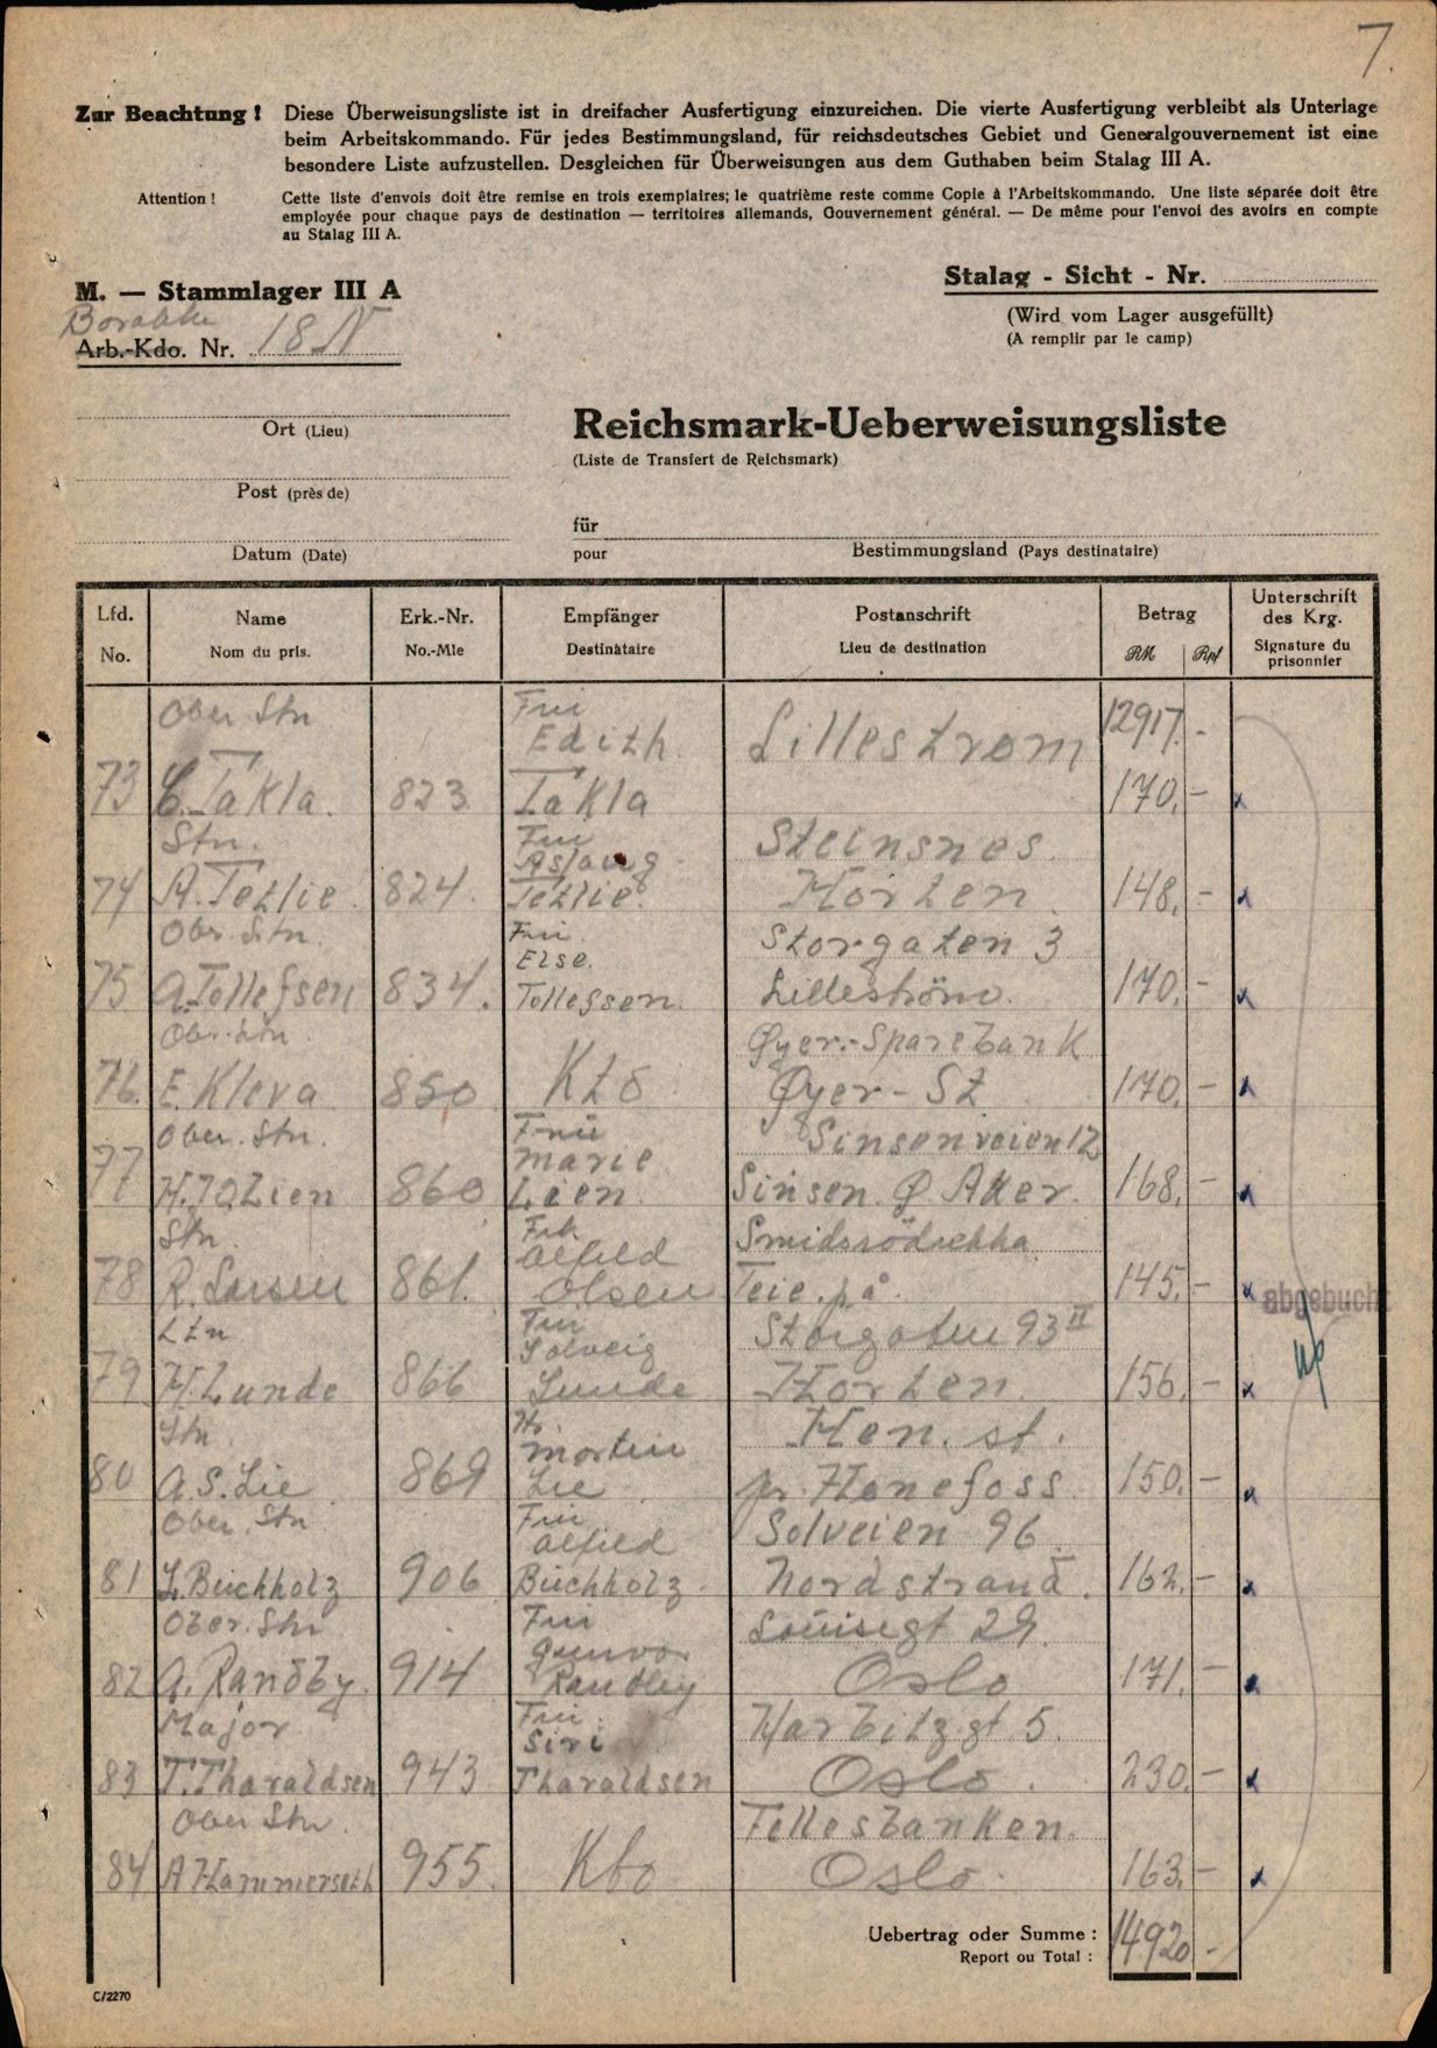 7.
Zur Beachtung! Diese Überweisungsliste ist in dreifacher Ausfertigung einzureichen. Die vierte Ausfertigung verbleibt als Unterlage
beim Arbeitskommando. Für jedes Bestimmungsland, für reichsdeutsches Gebiet und Generalgouvernement ist eine
besondere Liste aufzustellen. Desgleichen für Überweisungen aus dem Guthaben beim Stalag III A.
Attention! Cette liste d'envois doit être remise en trois exemplaires; le quatrième reste comme Copie à l'Arbeitskommando. Une liste séparée doit être
employée pour chaque pays de destination — territoires allemands, Gouvernement général. — De même pour l'envoi des avoirs en compte
au Stalag III A.
Stalag - Sicht - Nr.
(Wird vom Lager ausgefüllt)
(A remplir par le camp)
M. — Stammlager III A
Arb.-Kdo. Nr. 18 N
Ort (Lieu)
Post (près de)
Datum (Date)
Reichsmark-Ueberweisungsliste
(Liste de Transfert de Reichsmark)
für
pour Bestimmungsland (Pays destinataire)
Lfd. Name Erk.-Nr. Empfänger Postanschrift Betrag Unterschrift des Krg.
No. Nom du pris. No.-Mle Destinataire Lieu de destination RM Rpf Signature du prisonnier
Ober Ltn Frü Edith Lillestrom 12917.-
73 C. Takla. 823 Takla 170.- x
Ltn. Frü Aslaug Steinsnes.
74 A. Tetlie 824. Tetlie. Horten. 148.- x
Ober. Ltn. Frü. Else. Storgaten 3
75 A. Tollefsen 834. Tollefsen. Lilleström. 170.- x
Ober. Ltn. Øyer.-Sparebank
76. E. Kleva 850 Kto Øyer - St 170.- x
Ober. Ltn. Früe Marie Sinsenveien 12
77 H. J. O. Lien 860 Lien. Sinsen. Ø. Aker. 168.- x
Ltn. Frk. Alfild
78 R. Larsen 861. Olsen Teie. p.å. 145.- x abgebucht
Ltn Frü Solveig Storgaten 93 II
79 H. Lunde 866 Lunde Horten. 156.- x
Ltn Hr. Morten Hen. st.
80 A. S. Lie 869 Lie pr. Hønefoss. 150.- x
Ober. Ltn Frü Alfild Solveien 96.
81 L. Buchholz 906 Buchholz. Nordstrand. 162.- x
Ober. Ltn Frü Gunvor Louisegt 29.
82 A. Randby. 914 Randby Oslo 171.- x
Major Frü. Siri Harbitz.gt 5.
83 T. Tharaldsen 943 Tharaldsen Oslo. 230.- x
Ober Ltn. Fellesbanken.
84 A Hammerseth 955. Kto Oslo. 163.- x
Uebertrag oder Summe: 14920.-
Report ou Total:
C/2270